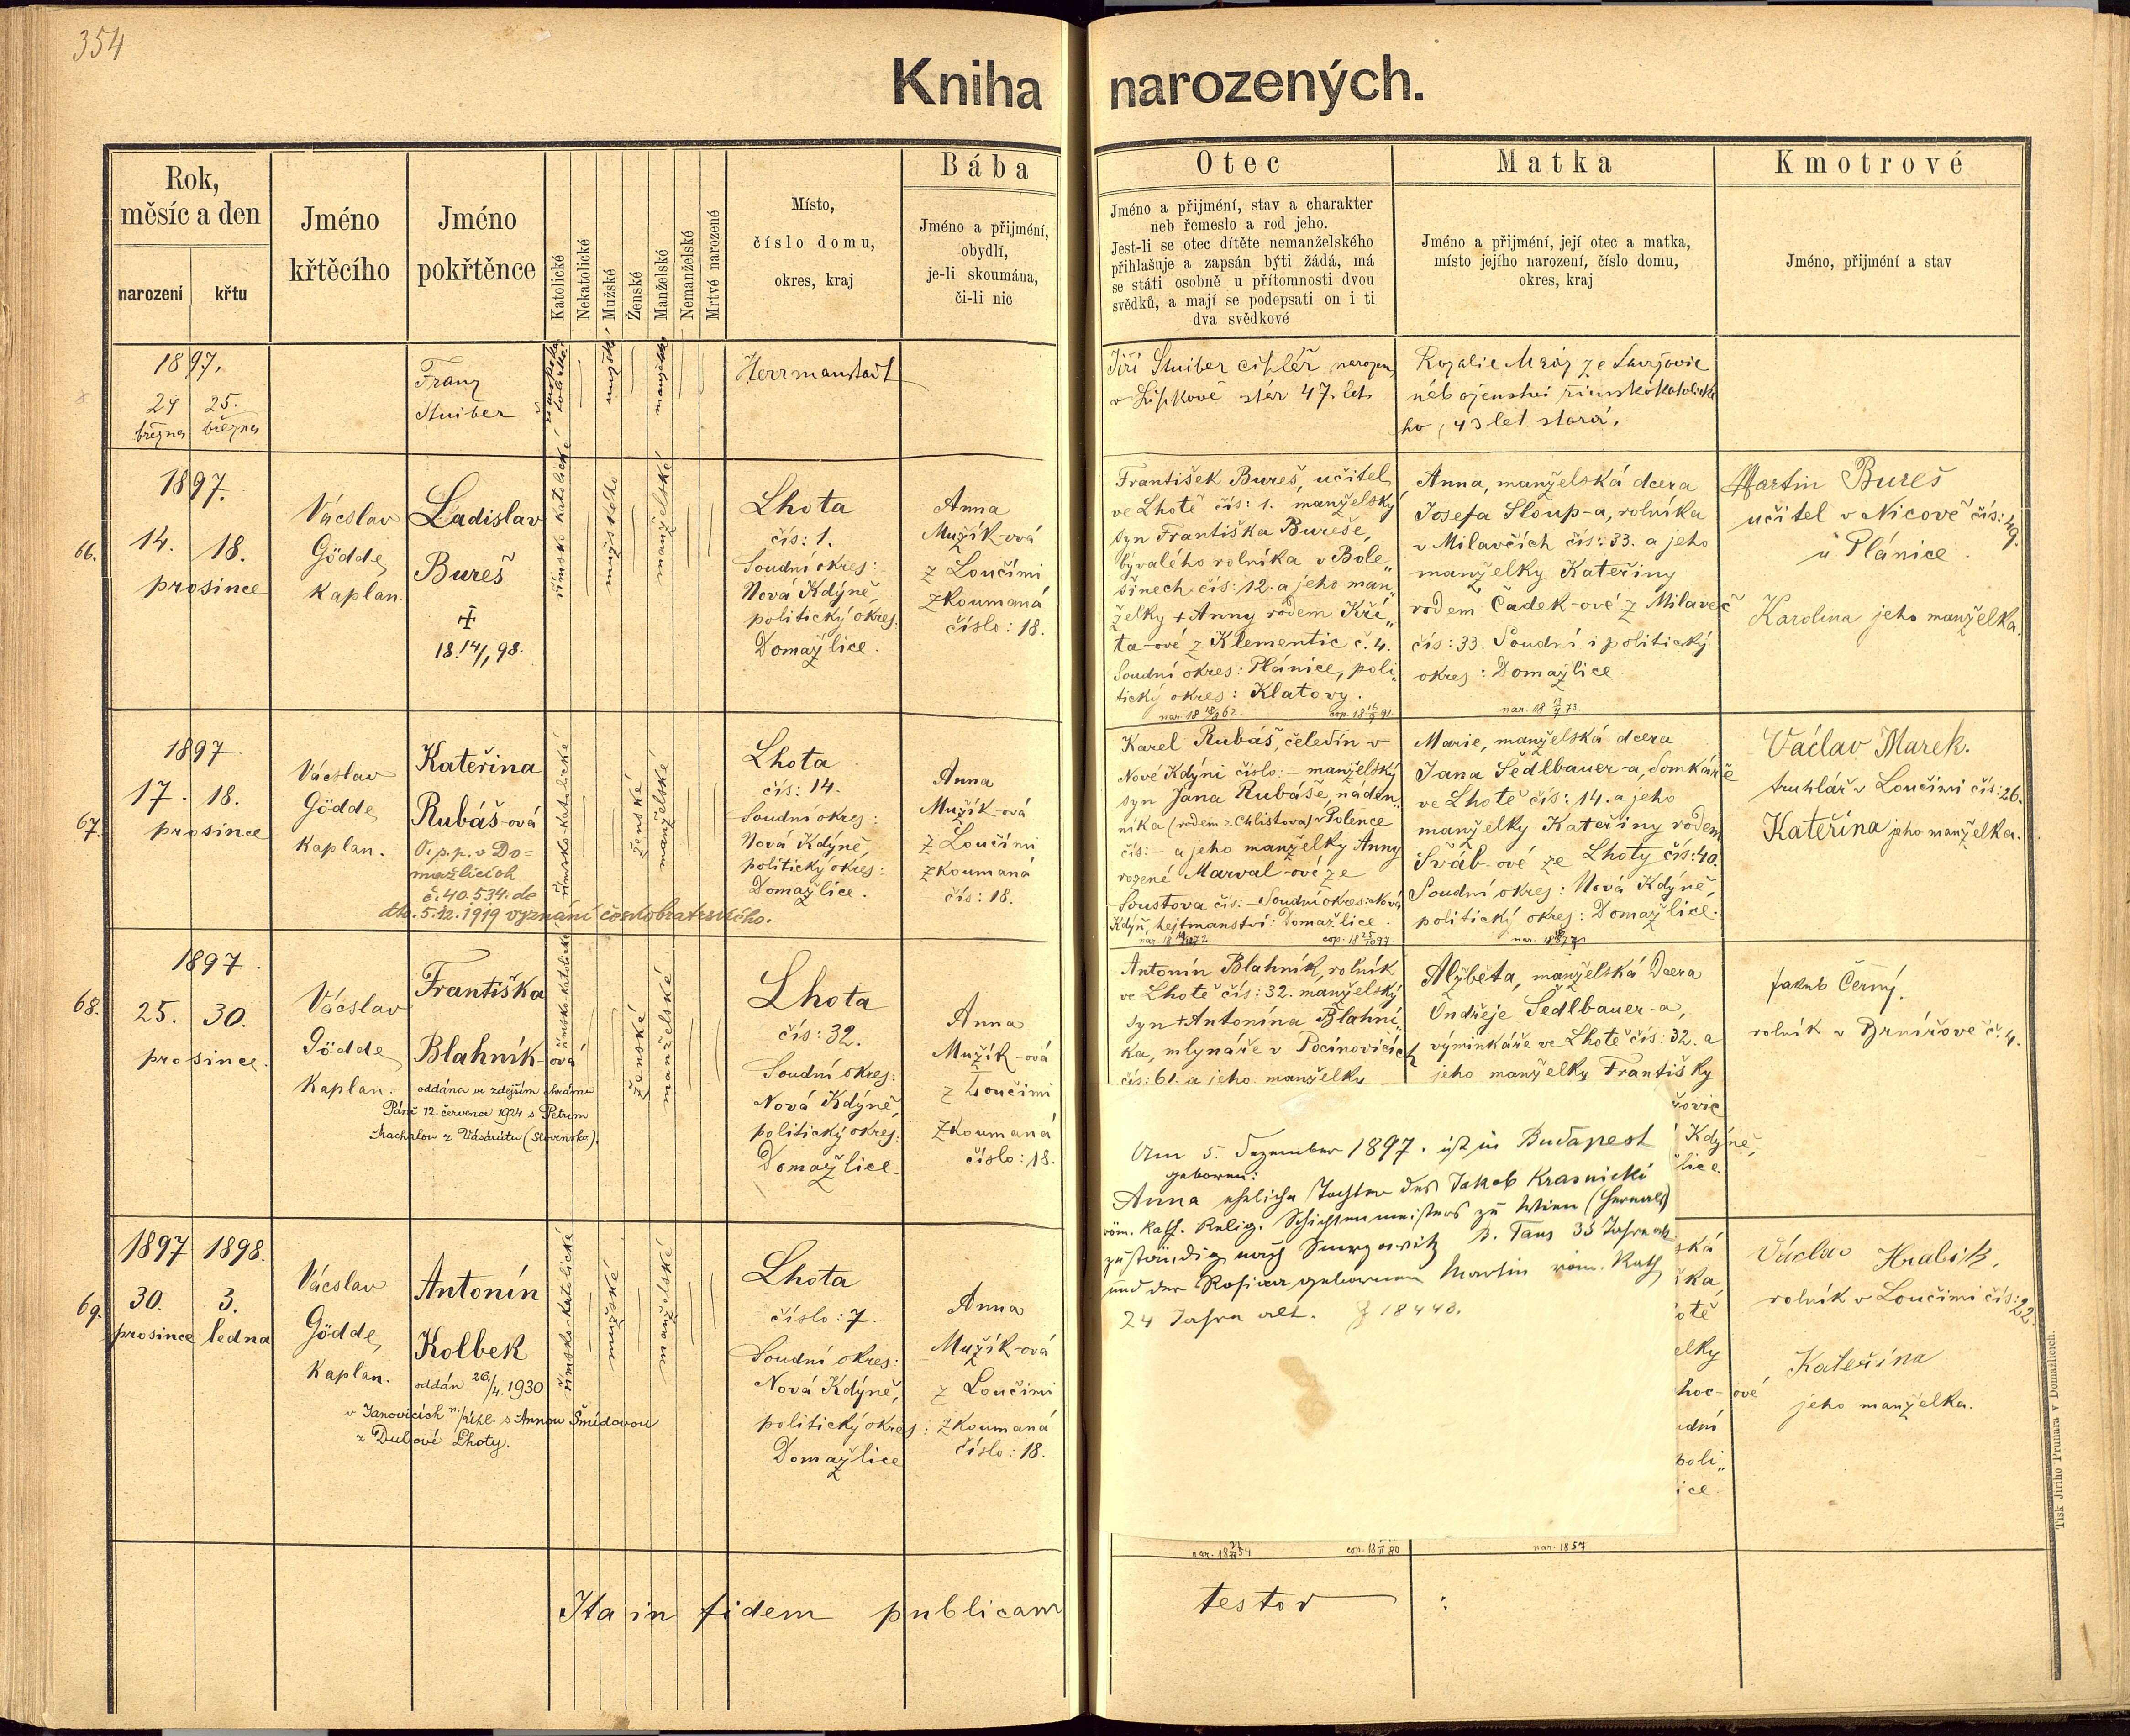 354
Kniha narozených.
Rok,
měsíc a den
narození
křtu
Jméno
křtěcího
Jméno
pokřtěnce
Katolické
Nekatolické
Mužské
Ženské
Manželské
Nemanželské
Mrtvě narozené
Místo,
číslo domu,
okres, kraj
Bába
Jméno a přijmení,
obydlí,
je-li skoumána,
či-li nic
Otec
Jméno a přijmení, stav a charakter
neb řemeslo a rod jeho.
Jest-li se otec dítěte nemanželského
přihlašuje a zapsán býti žádá, má
se státi osobně u přítomnosti dvou
svědků, a mají se podepsati on i ti
dva svědkové
Matka
Jméno a přijmení, její otec a matka,
místo jejího narození, číslo domu,
okres, kraj
Kmotrové
Jméno, přijmení a stav
1897.
24 25.
března března
Franz
Stuiber
mužské
manželské
Herrmanstadt
Jiří Stuiber
47 let
Rozalie
43 let stará,
66.
1897.
14. 18.
prosince
Vácslav
Gödde,
Kaplan.
Ladislav
Bureš
+
18 14/1 98.
římsko katolické
mužského
manželské
Lhota
čís: 1.
Soudní okres:
Nová Kdýně,
politický okres:
Domažlice.
Anna
Mužík-ová
z Loučimi
zkoumaná
číslo: 18.
František Bureš, učitel
ve Lhotě čís: 1. manželský
syn Františka Bureše,
bývalého rolníka v Bole„
šinech čís: 12. a jeho man„
želky + Anny rodem Kří„
ta-ové z Klementic č. 4.
Soudní okres: Plánice, poli„
tický okres: Klatovy.
Anna, manželská dcera
Josefa Sloup-a, rolníka
v Milavčích čís: 33. a jeho
manželky Kateřiny
rodem Čadek-ové z Milaveč
čís: 33. Soudní i politický
okres: Domažlice
Martin Bureš
učitel v Nicově čís: 49.
u Plánice.
Karolina jeho manželka.
67.
1897
17. 18.
prosince
Vácslav
Gödde,
Kaplan.
Kateřina
Rubáš-ová
O.p.p. v Do=
mažlicích
č. 40.534. de
dto. 5.12.1919 vyznání českobratrského.
římsko-katolické
ženské
manželské
Lhota
čís: 14.
Soudní okres:
Nová Kdýně
politický okres:
Domažlice.
Anna
Mužík-ová
z Loučimi
zkoumaná
čís: 18.
Karel Rubáš, čeledín v
Nové Kdýni číslo: – manželský
syn Jana Rubáše, náden„
níka (rodem z Chlistova) v Polence
čís: – a jeho manželky Anny
rozené Marval-ové ze
Soustova čís: – Soudní okres: Nová
Kdýň, hejtmanství: Domažlice.
Marie, manželská dcera
Jana Sedlbauer-a, domkáře
ve Lhotě čís: 14. a jeho
manželky Kateřiny rodem
Šváb-ové ze Lhoty čís: 40.
Soudní okres: Nová Kdýně,
politický okres: Domažlice.
Václav Marek.
truhlář v Loučimi čís: 26.
Kateřina jeho manželka.
68.
1897.
25. 30.
prosince.
Vácslav
Gödde,
Kaplan.
Františka
Blahník-ová
oddána ve zdejším chrámu
Páně 12. července 1924 s Petrem
římsko-katolické
ženské
manželské
Lhota
čís: 32.
Soudní okres:
Nová Kdýně,
politický okres:
Domažlice.
Anna
Mužík-ová
z Loučimi
zkoumaná
číslo: 18.
Antonín Blahník, rolník
ve Lhotě čís: 32. manželský
syn + Antonína Blahní„
ka, mlynáře v Pocinovicích
čís: 61. a jeho manželky
Alžběta, manželská dcera
Ondřeje Sedlbauer-a,
výminkáře ve Lhotě čís: 32. a
jeho manželky Františky
Jakub Černý,
rolník v Brnířově č. 4.
Am 5. Dezember 1897. ist in Budapest
geboren:
Anna eheliche Tochter des Jakob Krasnicki
röm. kath. Relig. Schichtenmeisters zu Wien (Hernals)
zuständig nach B. Taus 35 Jahre alt
und der geborenen Martin röm. Kath
24 Jahre alt. 18440.
69.
1897 1898.
30. 3.
prosince ledna
Vácslav
Gödde,
Kaplan.
Antonín
Kolbek
oddán 26/4. 1930
v Janovicích n./Úhl. s Annou Šmídovou
z Dubové Lhoty.
římsko-katolické
mužské
manželské
Lhota
číslo: 7.
Soudní okres:
Nová Kdýně,
politický okres:
Domažlice
Anna
Mužík-ová
z Loučimi
zkoumaná
číslo: 18.
Václav Hrabík,
rolník v Loučimi čís: 22.
Kateřina
jeho manželka.
nar. 1857
Ita in fidem publicam testor
Tisk Jiřího Prunara v Domažlicích.